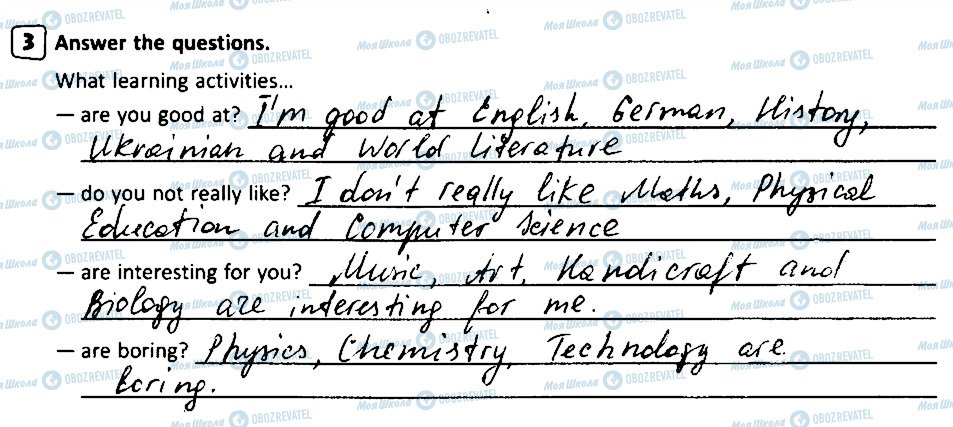 3 Answer the questions.
What learning activities...
– are you good at? I'm good at English, German, History,
Ukrainian and World Literature
– do you not really like? I don't really like Maths, Physical
Education and Computer Science
– are interesting for you? Music, Art, Handicraft and
Biology are interesting for me.
– are boring? Physics, Chemistry, Technology are
boring.